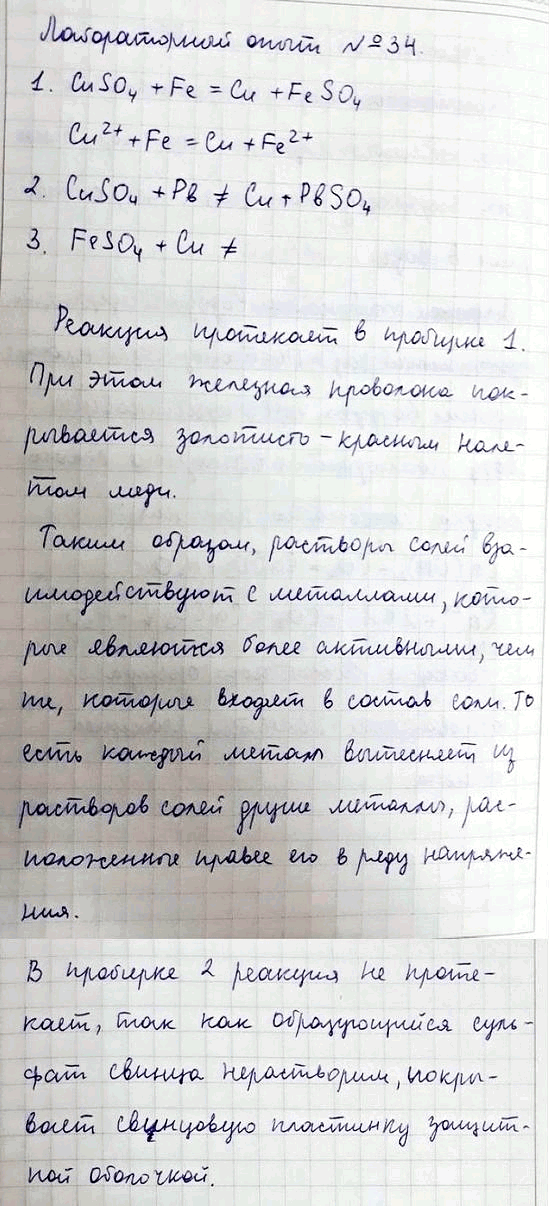 Лабораторный опыт №34.
1. CuSO₄ + Fe = Cu + FeSO₄
Cu²⁺ + Fe = Cu + Fe²⁺
2. CuSO₄ + Pb ≠ Cu + PbSO₄
3. FeSO₄ + Cu ≠
Реакция протекает в пробирке 1.
При этом железная проволока пок-
рывается золотисто-красным нале-
том меди.
Таким образом, растворы солей вза-
имодействуют с металлами, кото-
рые являются более активными, чем
те, которые входят в состав соли. То
есть каждый металл вытесняет из
растворов солей другие металлы, рас-
положенные правее его в ряду напряже-
ния.
В пробирке 2 реакция не проте-
кает, так как образующийся суль-
фат свинца нерастворим, покры-
вает свинцовую пластинку защит-
ной оболочкой.